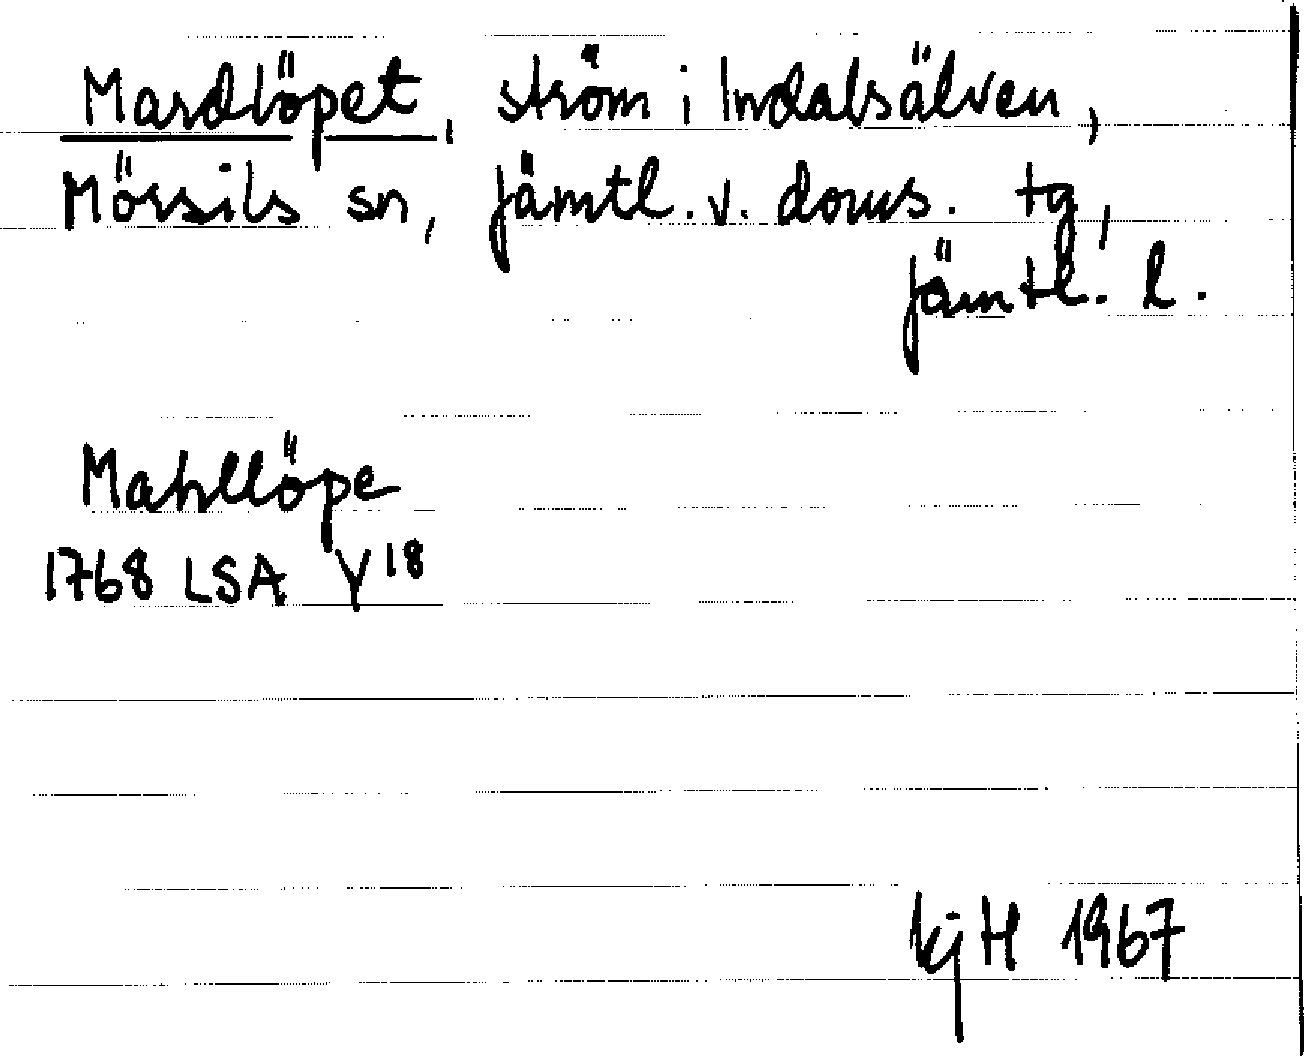 Mardlöpet, ström i Indalsälven,
Mörsils sn, Jämtl. v. doms. tg,
Jämtl. l.
Mahllöpe
1768 LSA Y 18
kj H 1967